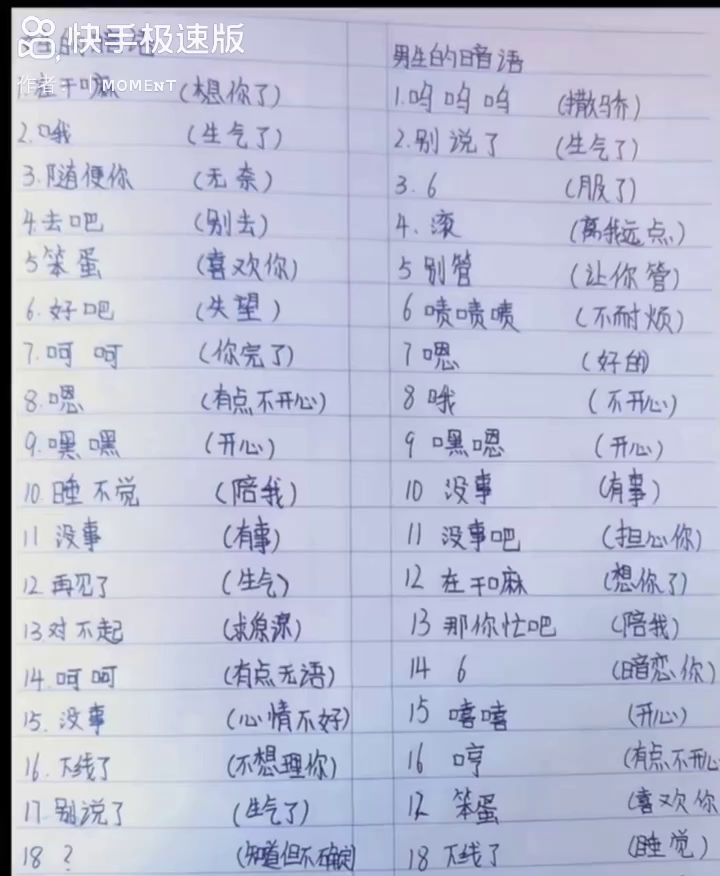 快手极速版
的暗语
作者: | MOMENT
1.在干嘛 (想你了)
2.哦 (生气了)
3.随便你 (无奈)
4.去吧 (别去)
5 笨蛋 (喜欢你)
6.好吧 (失望)
7.呵呵 (你完了)
8.嗯 (有点不开心)
9.嘿嘿 (开心)
10.睡不觉 (陪我)
11 没事 (有事)
12.再见了 (生气)
13 对不起 (求原谅)
14.呵呵 (有点无语)
15.没事 (心情不好)
16.下线了 (不想理你)
17 别说了 (生气了)
18 ? (知道但不确定)
男生的暗语
1.呜呜呜 (撒娇)
2.别说了 (生气了)
3.6 (服了)
4.滚 (离我远点)
5 别管 (让你管)
6 啧啧啧 (不耐烦)
7 嗯 (好的)
8 哦 (不开心)
9 嘿嗯 (开心)
10 没事 (有事)
11 没事吧 (担心你)
12 在干嘛 (想你了)
13 那你忙吧 (陪我)
14 6 (暗恋你)
15 嘻嘻 (开心)
16 哼 (有点不开心
17 笨蛋 (喜欢你
18 下线了 (睡觉)